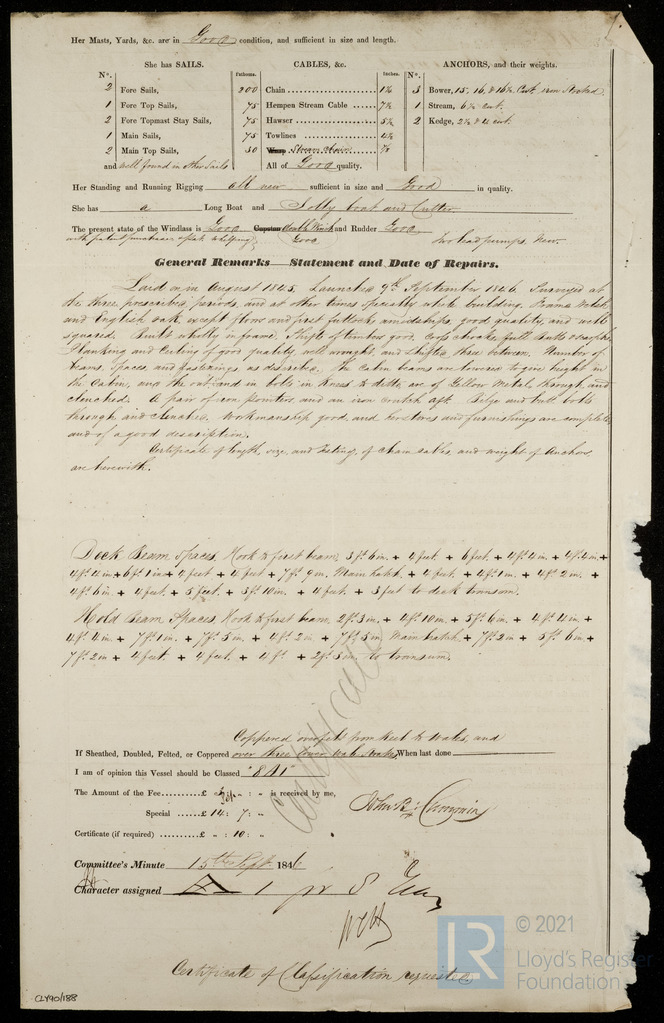 Her Masts, Yards, &c. are in Good condition, and sufficient in size and length.
She has SAILS. CABLES, &c. ANCHORS, and their weights.
N°. Fathoms. Inches. N°.
2 Fore Sails, 200 Chain 3 Bower, 15, 16, & 16½ Cwt. iron Stocked
1 Fore Top Sails, 75 Hempen Stream Cable 7½ 1 Stream, 6½ cwt.
2 Fore Topmast Stay Sails, 75 Hawser 5½ 2 Kedge, 2¾ & 1¼ cwt.
1 Main Sails, 75 Towlines 4½
2 Main Top Sails, 50 Warp Stream chain 7/8
and well found in other Sails All of Good quality.
Her Standing and Running Rigging all new sufficient in size and Good in quality.
She has a Long Boat and Jolly boat and Cutter
The present state of the Windlass is Good Capstan double Winch and Rudder Good
with patent purchase Good Two head pumps, New.
General Remarks Statement and Date of Repairs.
Laid on in August 1845. Launched 9th September 1846. Surveyed at
the three prescribed periods, and at other times specially while building. Frame Welsh
and English oak, except floors and first futtocks amidships, good quality, and well
squared. Built wholly in frame. Shifts of timber good.
Planking and Ceiling of good quality, well wrought, and shifted three between. Number of
beams, spaces, and fastenings as described. The Cabin beams are lowered to give height in
the Cabin, and the out and in bolts in Knees to ditto, are of Yellow Metal through and
clenched. A pair of iron pointers and an iron crutch aft. Bilge and butt bolts
through and clenched. Workmanship good, and her stores and furnishings are complete
and of a good description.
Certificate of length, size, and testing, of chain cables, and weight of Anchors
are herewith.
Deck Beam Spaces, Hook to first beam, 3 ft. 6 in. + 4 feet + 6 feet + 4 ft. 4 in. + 4 ft. 4 in. +
4 ft. 4 in + 6 ft 1 in + 4 feet + 4 feet + 7 ft. 9 in. Main hatch + 4 feet + 4 ft. 1 in. + 4 ft. 2 in. +
4 ft. 6 in + 4 feet + 5 feet + 3 ft. 10 in. + 4 feet + 3 feet to deck transom.
Hold Beam Spaces Hook to first beam, 2 ft. 3 in. + 4 ft. 10 in. + 5 ft. 6 in. + 4 ft. 4 in. +
4 ft. 4 in + 7 ft. 1 in. + 7 ft. 5 in. + 4 ft. 2 in + 7 ft. 8 in, Main hatch + 7 ft. 2 in + 5 ft. 6 in. +
7 ft. 2 in + 4 feet + 4 feet + 4 ft. + 2 ft. 8 in. to transom.
Coppered over felt from keel to Wales, and
If Sheathed, Doubled, Felted, or Coppered over three lower Wale Strakes, When last done
I am of opinion this Vessel should be Classed "8 A1"
The Amount of the Fee......£ 5 : „ : „ is received by me,
Special ......£ 14 : 7 : „
Certificate (if required) ......£ „ : 10 : „
Committee's Minute 15th Sept. 1846
Character assigned 1
Certificate of Classification requested.
CLY90/188
LR
© 2021
Lloyd's Register
Foundation